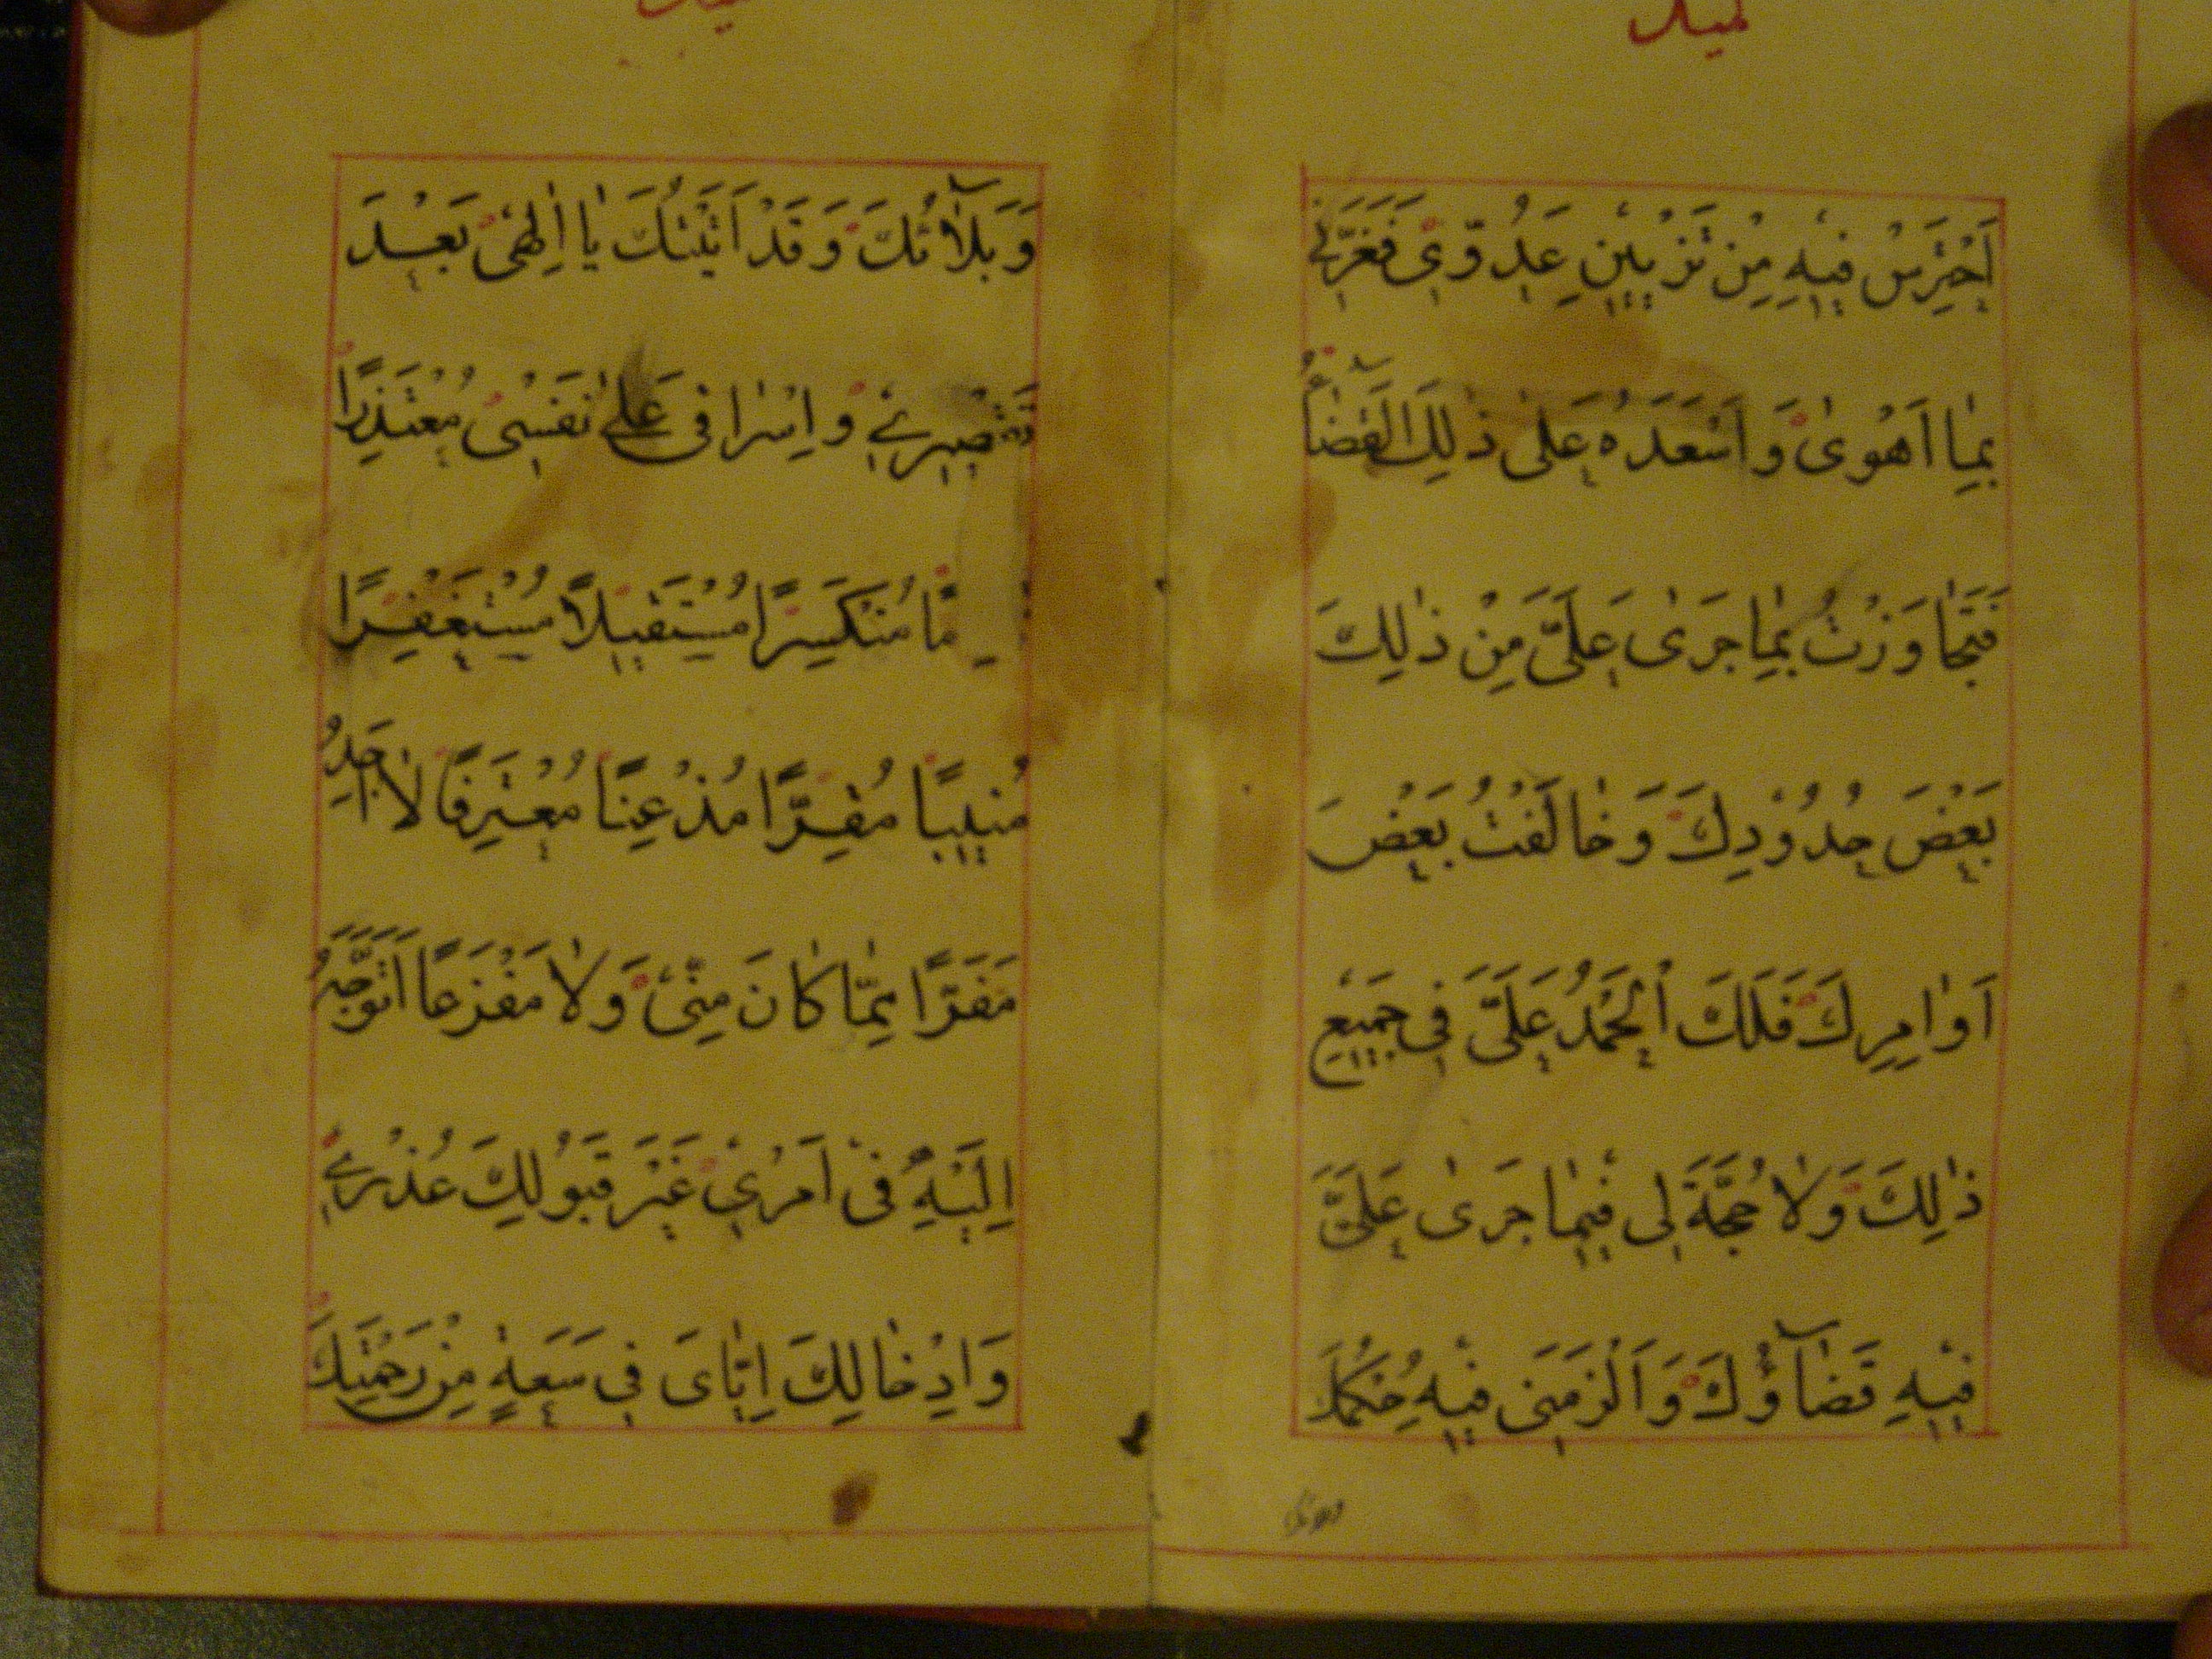 كميل
اَحْتَرِسُ فيهِ مِنْ تَزْيينِ عَدُوّي فَغَرَّني
بِمٰا اَهْوىٰ وَ اَسْعَدَهُ عَلىٰ ذٰلِكَ الْقَضٰآءُ
فَتَجٰاوَزْتُ بِمٰا جَرىٰ عَلَىَّ مِنْ ذٰلِكَ
بَعْضَ حُدُودِكَ وَ خٰالَفْتُ بَعْضَ
اَوٰامِرِكَ فَلَكَ الْحَمْدُ عَلَىَّ فى جَميعِ
ذٰلِكَ وَلاٰ حُجَّةَ لى فيمٰا جَرىٰ عَلَىَّ
فيهِ قَضٰآؤُكَ وَ اَلْزَمَنى فيهِ حُكْمُكَ
وَ بَلٰآئُكَ وَ قَدْ اَتَيْتُكَ يٰا اِلٰهى بَعْدَ
تَقْصيرى وَ اِسْرٰافى عَلىٰ نَفْسى مُعْتَذِرًا
مًا مُنْكَسِرًا مُسْتَقيلاً مُسْتَغْفِرًا
مُنيبًا مُقِرًّا مُذْعِنًا مُعْتَرِفًا لاٰ اَجِدُ
مَفَرًّا مِمّٰا كٰانَ مِنّى وَلاٰ مَفْزَعًا اَتَوَجَّهُ
اِلَيْهِ فى اَمْرى غَيْرَ قَبُولِكَ عُذْرى
وَ اِدْخٰالِكَ اِيّٰاىَ فى سَعَةٍ مِنْ رَحْمَتِكَ